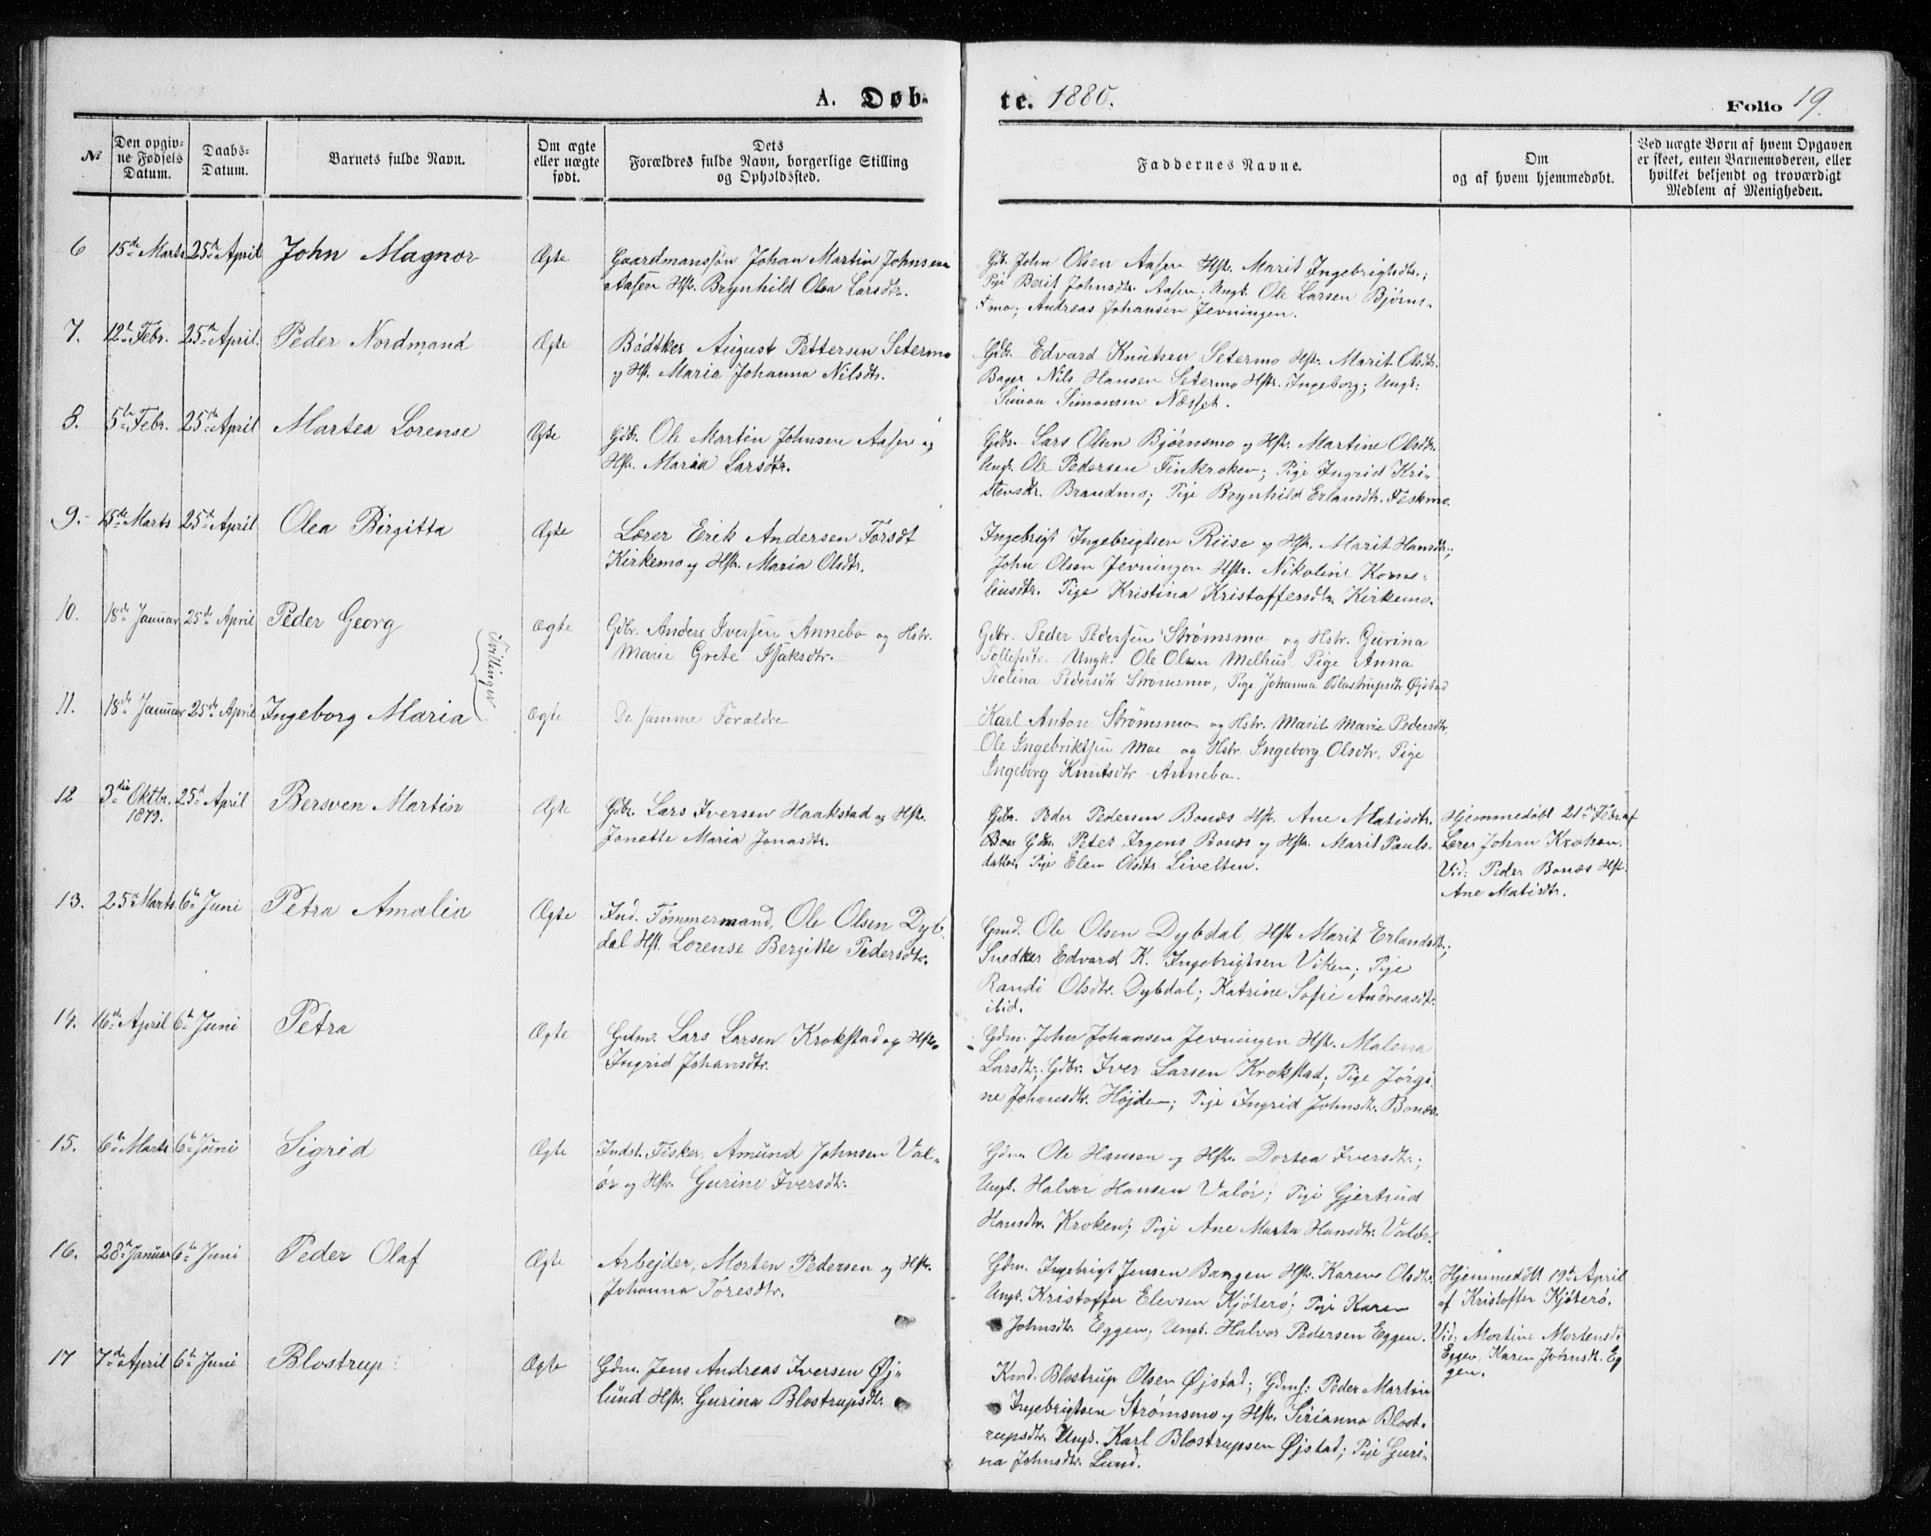 A. Døb-
te. 1880.
Folio 19.
№
Den opgiv-
ne Fødsels
Datum.
Daabs-
Datum.
Barnets fulde Navn.
Om ægte
eller uægte
født.
Dets
Forældres fulde Navn, borgerlige Stilling
og Opholdssted.
Faddernes Navne.
Om
og af hvem hjemmedøbt.
Ved uægte Børn af hvem Opgaven
er skeet, enten Barnemoderen, eller
hvilket bekjendt og troværdigt
Medlem af Menigheden.
6 15de Marts 25de April John Magnor Ægte
Gaardmanssøn Johan Martin Johnsen
Aasen Hstr. Brynhild Olea Larsdtr.
Gb. John Olsen Aasen Hstr. Marit Ingebrigtsdtr.;
Pige Berit Johnsdtr. Aasen, Ungk. Ole Larsen Bjørns-
mo; Andreas Johansen Jevningen.
7. 12te Febr. 25de April. Peder Nordmand Ægte
Bødtker August Pettersen Setermo
og Hst. Maria Johanna Nilsdtr.
Gdbr. Edvard Knutsen Setermo Hstr. Marit Olsdtr.
Bager Nils Hansen Setermo Hstr. Ingeborg; Ungk:
Simon Simonsen Næsset.
8. 5te Febr. 25de April Martea Lorense Ægte
Gdbr. Ole Martin Johnsen Aasen og
Hstr. Maria Larsdtr.
Gdbr. Lars Olsen Bjørnsmo og Hstr. Martine Olsdtr.
Ungk. Ole Pedersen Finkroken; Pige Ingrid Kri-
stensdtr. Brandmo; Pige Brynhild Erlandsdtr. Feskmo.
9.- 15de Marts 25de April Olea Birgitta Ægte
Lærer Erik Andersen Forsdt
Kirkemo og Hstr. Maria Olsdtr.
Ingebrigt Ingebrigtsen Riise og Hstr. Marit Hansdtr.;
John Olsen Jevningen Hstr. Nikoline Korne-
liusdtr. Pige Kristina Kristoffersdtr. Kirkemo.
10. 18de Januar 25de April Peder Georg Ægte
Gdbr. Anders Iversen Annebo og Hstr.
Marie Grete Isaksdtr.
Gdbr. Peder Pedersen Strømsmo og Hstr. Gurina
Tollefsdtr. Ungk: Ole Olsen Melhus, Pige Anna
Teolina Pedersdtr Strømsmo, Pige Johanna Blostrupsdtr Øjstad
Tvillinger
11. 18de Januar 25de April Ingeborg Maria Ægte
De samme Forældre
Karl Anton Strømsmo og Hstr. Marit Marie Pedersdtr
Ole Ingebriktsen Moe og Hstr. Ingeborg Olsdtr, Pige
Ingeborg Knutsdtr Annebo.
12 3die Oktbr. 25de April Bersven Martin Ægte
1879.
Gdbr. Lars Iversen Haakstad og Hstr.
Jonette Maria Jonasdtr.
Gdbr. Peder Pedersen Bonæs Hstr. Ane Matisdtr.
Gdbr. Peter Irgens Bonæs og Hstr. Marit Pauls-
datter, Pige Elen Olsdtr Livelten.
Hjemmedøbt 21de Febr af
Lærer Johan Krohen.
Vid: Peder Bonæs Hstr.
Ane Matisdtr.
13. 25de Marts 6te Juni Petra Amalia Ægte
Ind. Tømmermand, Ole Olsen Dyb-
dal Hst. Lorense Bergitte Pedersdtr.
Gmd. Ole Olsen Dybdal, Hstr Marit Erlandsdtr.;
Snedker Edvard K. Ingebrigtsen Viken; Pige
Randi Olsdtr. Dybdal; Katrine Sofie Andreasdtr.
ibid.
14. 16de April 6te Juni Petra Ægte
Gdm. Lars Larsen Krokstad og Hstr.
Ingrid Johansdtr.
Gdm. John Johansen Jevningen Hstr. Malena
Larsdtr.; Gdbr. Iver Larsen Krokstad; Pige Jørgi-
ne Johansdtr. Højden; Pige Ingrid Johnsdtr. Bonæs.
15. 6te Marts 6te Juni Sigrid Ægte
Indst. Fisker, Amund Johnsen Val-
ør og Hstr. Gurine Iversdtr.
Gdm. Ole Hansen og Hstr. Dortea Iversdtr.;
Ungk. Halvor Hansen Valør; Pige Gjertrud
Hansdtr. Kroken; Pige Ane Marta Hansdtr. Valør.
16. 28de Januar 6te Juni Peder Olaf Ægte
Arbejder, Morten Pedersen og Hstr.
Johanna Toresdtr.
Gdm. Ingebrigt Jensen Bangen Hstr. Karene Olsdtr.
Ungk. Kristoffer Elevsen Kjøterø; Pige Karen
Johnsdtr. Eggen; Ungk. Halvor Pedersen Eggen.
Hjemmedøbt 19de April
af Kristoffer Kjøterø.
Vid: Martine Mortensdtr
Eggen, Karen Johnsdtr. Eg
gen.
17 7de April 6te Juni Blostrup Ægte
Gdm. Jens Andreas Iversen Øj-
lund Hstr. Gurina Blostrupsdtr.
Kmd. Blostrup Olsen Øjstad; Gdms: Peder Martin
Ingebrigtsen Strømsmo og Hstr. Sirianna Blost-
rupsdtr. Ungk. Karl Blostrupsen Øjstad; Pige Guri-
na Johnsdtr. Lund.